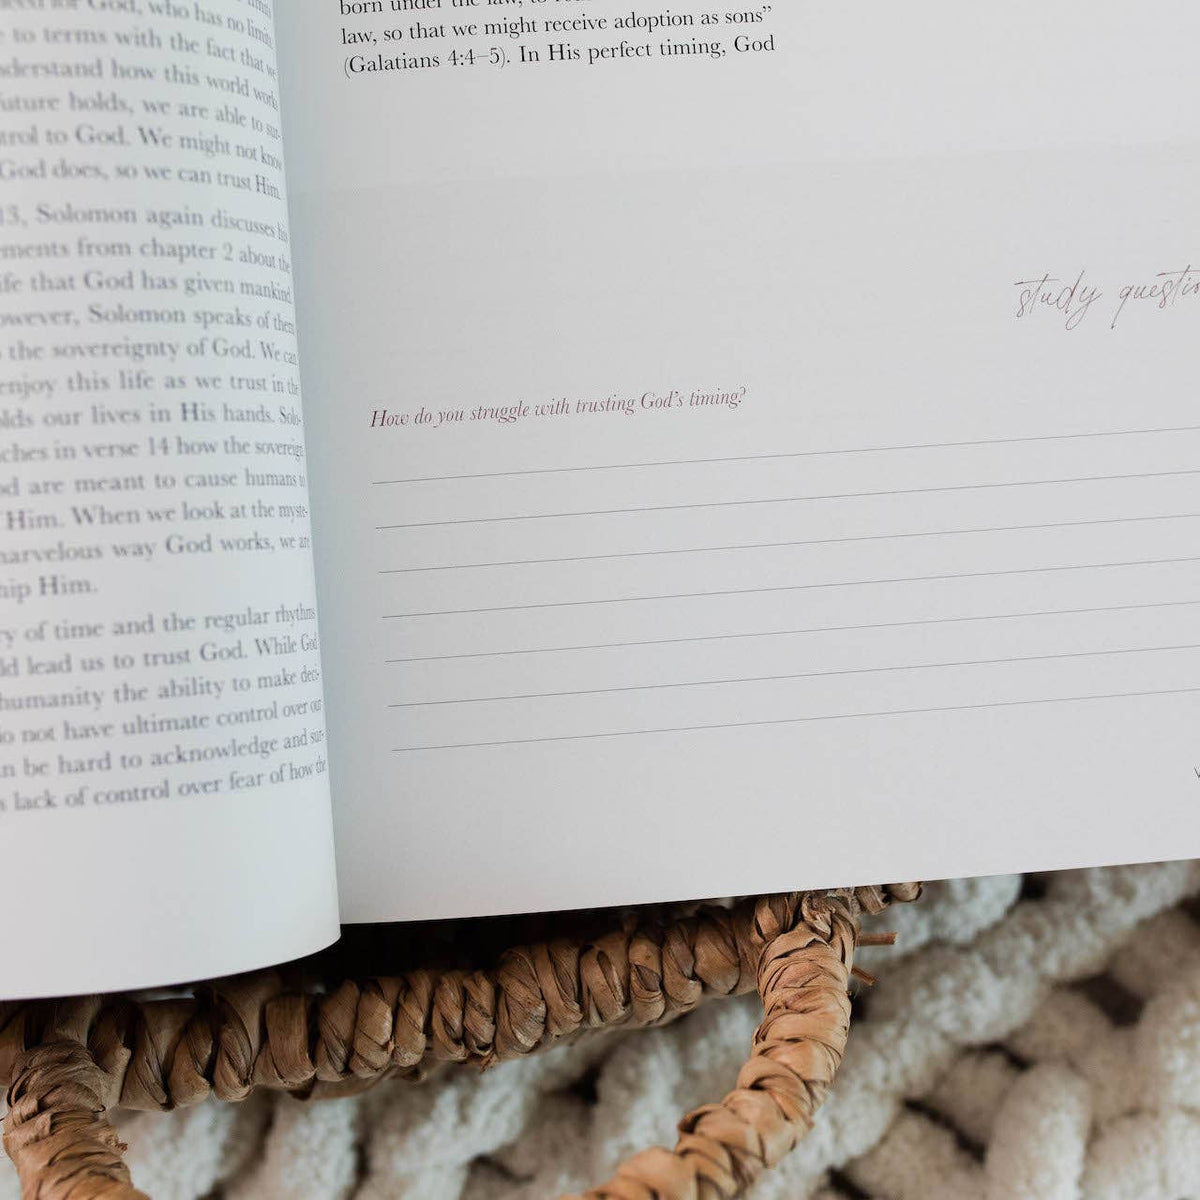 God, who has no
to terms with the fact that we
how this world work
holds, we are able to sur-
to God. We might not know
God does, so we can trust Him.
13, Solomon again discusses his
from chapter 2 about the
that God has given mankind
Solomon speaks of them
the sovereignty of God. We can
enjoy this life as we trust in the
our lives in His hands. Solo-
in verse 14 how the sovereign
are meant to cause humans to
Him. When we look at the myste-
marvelous way God works, we are
Him.
of time and the regular rhythms
lead us to trust God. While God
humanity the ability to make deci-
not have ultimate control over our
be hard to acknowledge and sur-
lack of control over fear of how the
born under the law, to
law, so that we might receive adoption as sons”
(Galatians 4:4–5). In His perfect timing, God
study
How do you struggle with trusting God's timing?